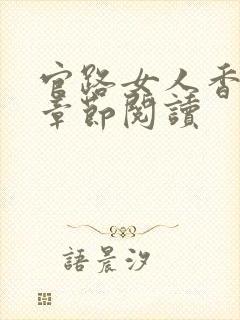 官路女人香
章節閱讀
語晨汐